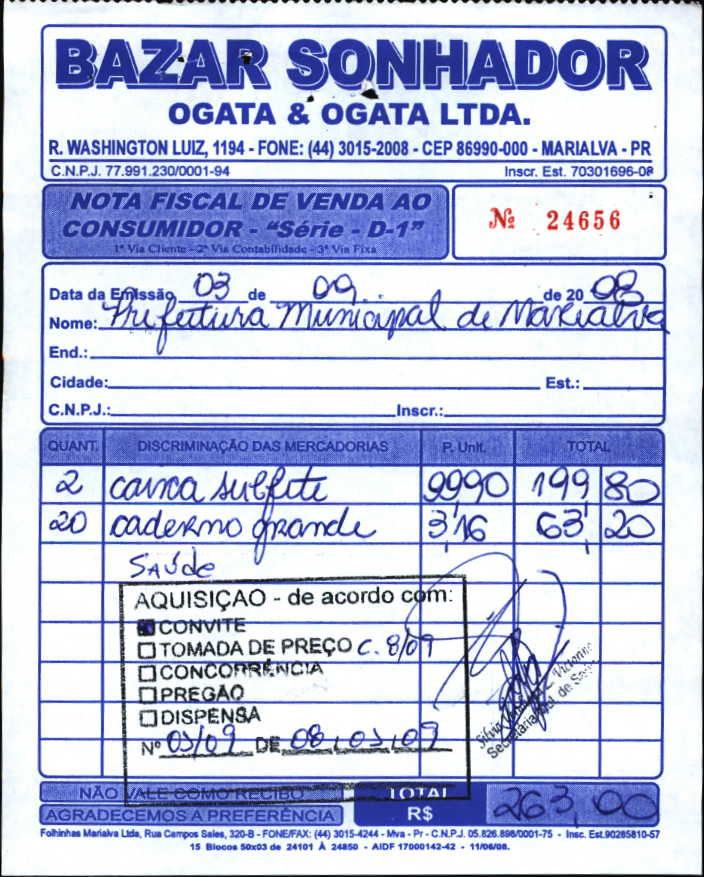 BAZAR SONHADOR
OGATA & OGATA LTDA.
R. WASHINGTON LUIZ, 1194 - FONE: (44) 3015-2008 - CEP 86990-000 - MARIALVA - PR
C.N.P.J. 77.991.230/0001-94 Inscr. Est. 70301696-08
NOTA FISCAL DE VENDA AO
CONSUMIDOR - "Série - D-1"
1ª Via Cliente - 2ª Via Contabilidade - 3ª Via Fixa
Nº 24656
Data da Emissão 03 de 09 de 20 08
Nome: Prefeitura Municipal de Marialva
End.:
Cidade: Est.:
C.N.P.J.: Inscr.:
QUANT. DISCRIMINAÇÃO DAS MERCADORIAS P. Unit. TOTAL
2 caixa sulfite 99,90 199,80
20 caderno grande 3,16 63,20
Saúde
AQUISIÇÃO - de acordo com:
CONVITE
TOMADA DE PREÇO C. 8/09
CONCORRÊNCIA
PREGÃO
DISPENSA
Nº 03/09 DE 08,03,09
Secretária de
NÃO VALE COMO RECIBO TOTAL
AGRADECEMOS A PREFERÊNCIA R$ 263,00
Folhinhas Marialva Ltda, Rua Campos Sales, 320-B - FONE/FAX: (44) 3015-4244 - Mva - Pr - C.N.P.J. 05.826.898/0001-75 - Insc. Est.90285810-57
15 Blocos 50x03 de 24101 À 24850 - AIDF 17000142-42 - 11/06/08.